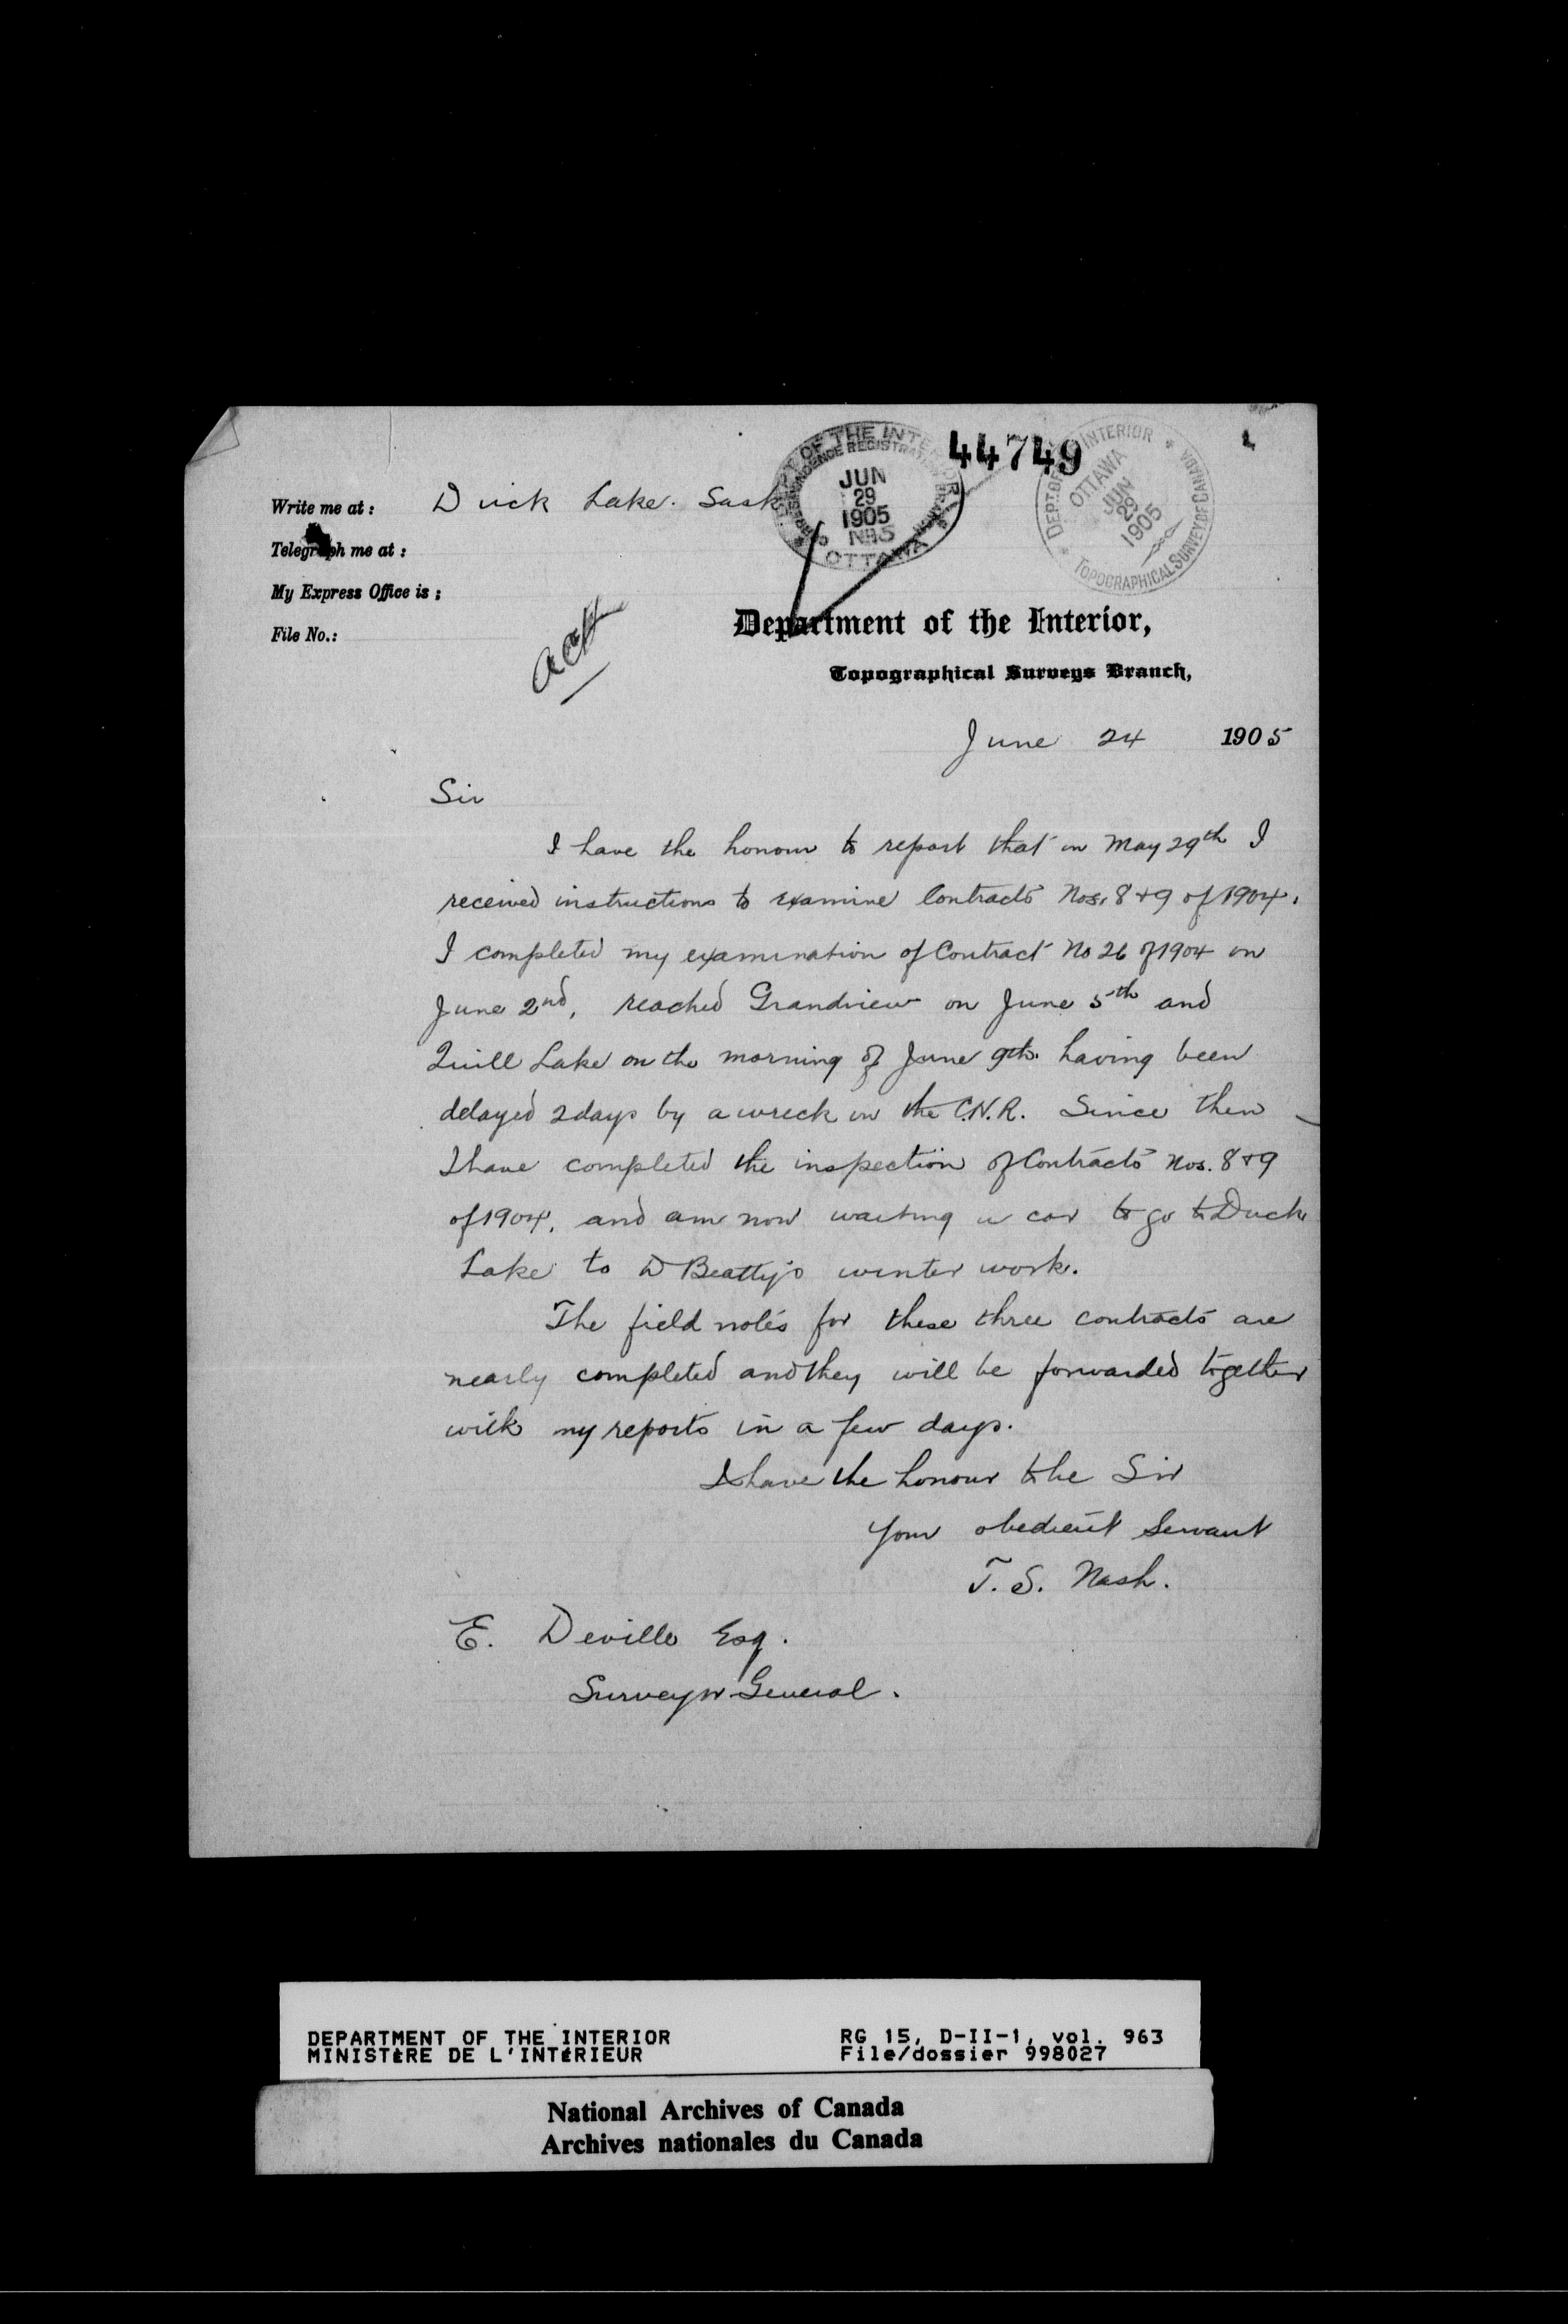 44749
DEPT. OF THE INTERIOR
CORRESPONDENCE REGISTRATION BRANCH
JUN
29
1905
OTTAWA
DEPT. OF INTERIOR
OTTAWA
JUN
29
1905
TOPOGRAPHICAL SURVEY OF CANADA
Write me at: Duck Lake. Sask
Telegraph me at:
My Express Office is:
File No.:
Ack
Department of the Interior,
Topographical Surveys Branch,
June 24 1905
Sir
I have the honour to report that on May 29th I
received instructions to examine Contracts Nos. 8 & 9 of 1904.
I completed my examination of Contract No 26 of 1904 on
June 2nd, reached Grandview on June 5th and
Quill Lake on the morning of June 9th. having been
delayed 2 days by a wreck on the C.N.R. Since then
I have completed the inspection of Contracts Nos. 8 & 9
of 1904. and am now waiting a car to go to Duck
Lake to D Beatty's winter work.
The field notes for these three contracts are
nearly completed and they will be forwarded together
with my reports in a few days.
I have the honour to be Sir
Your obedient Servant
T. S. Nash.
E. Deville Esq.
Surveyor General.
DEPARTMENT OF THE INTERIOR RG 15, D-II-1, vol. 963
MINISTÈRE DE L'INTÉRIEUR File/dossier 998027
National Archives of Canada
Archives nationales du Canada